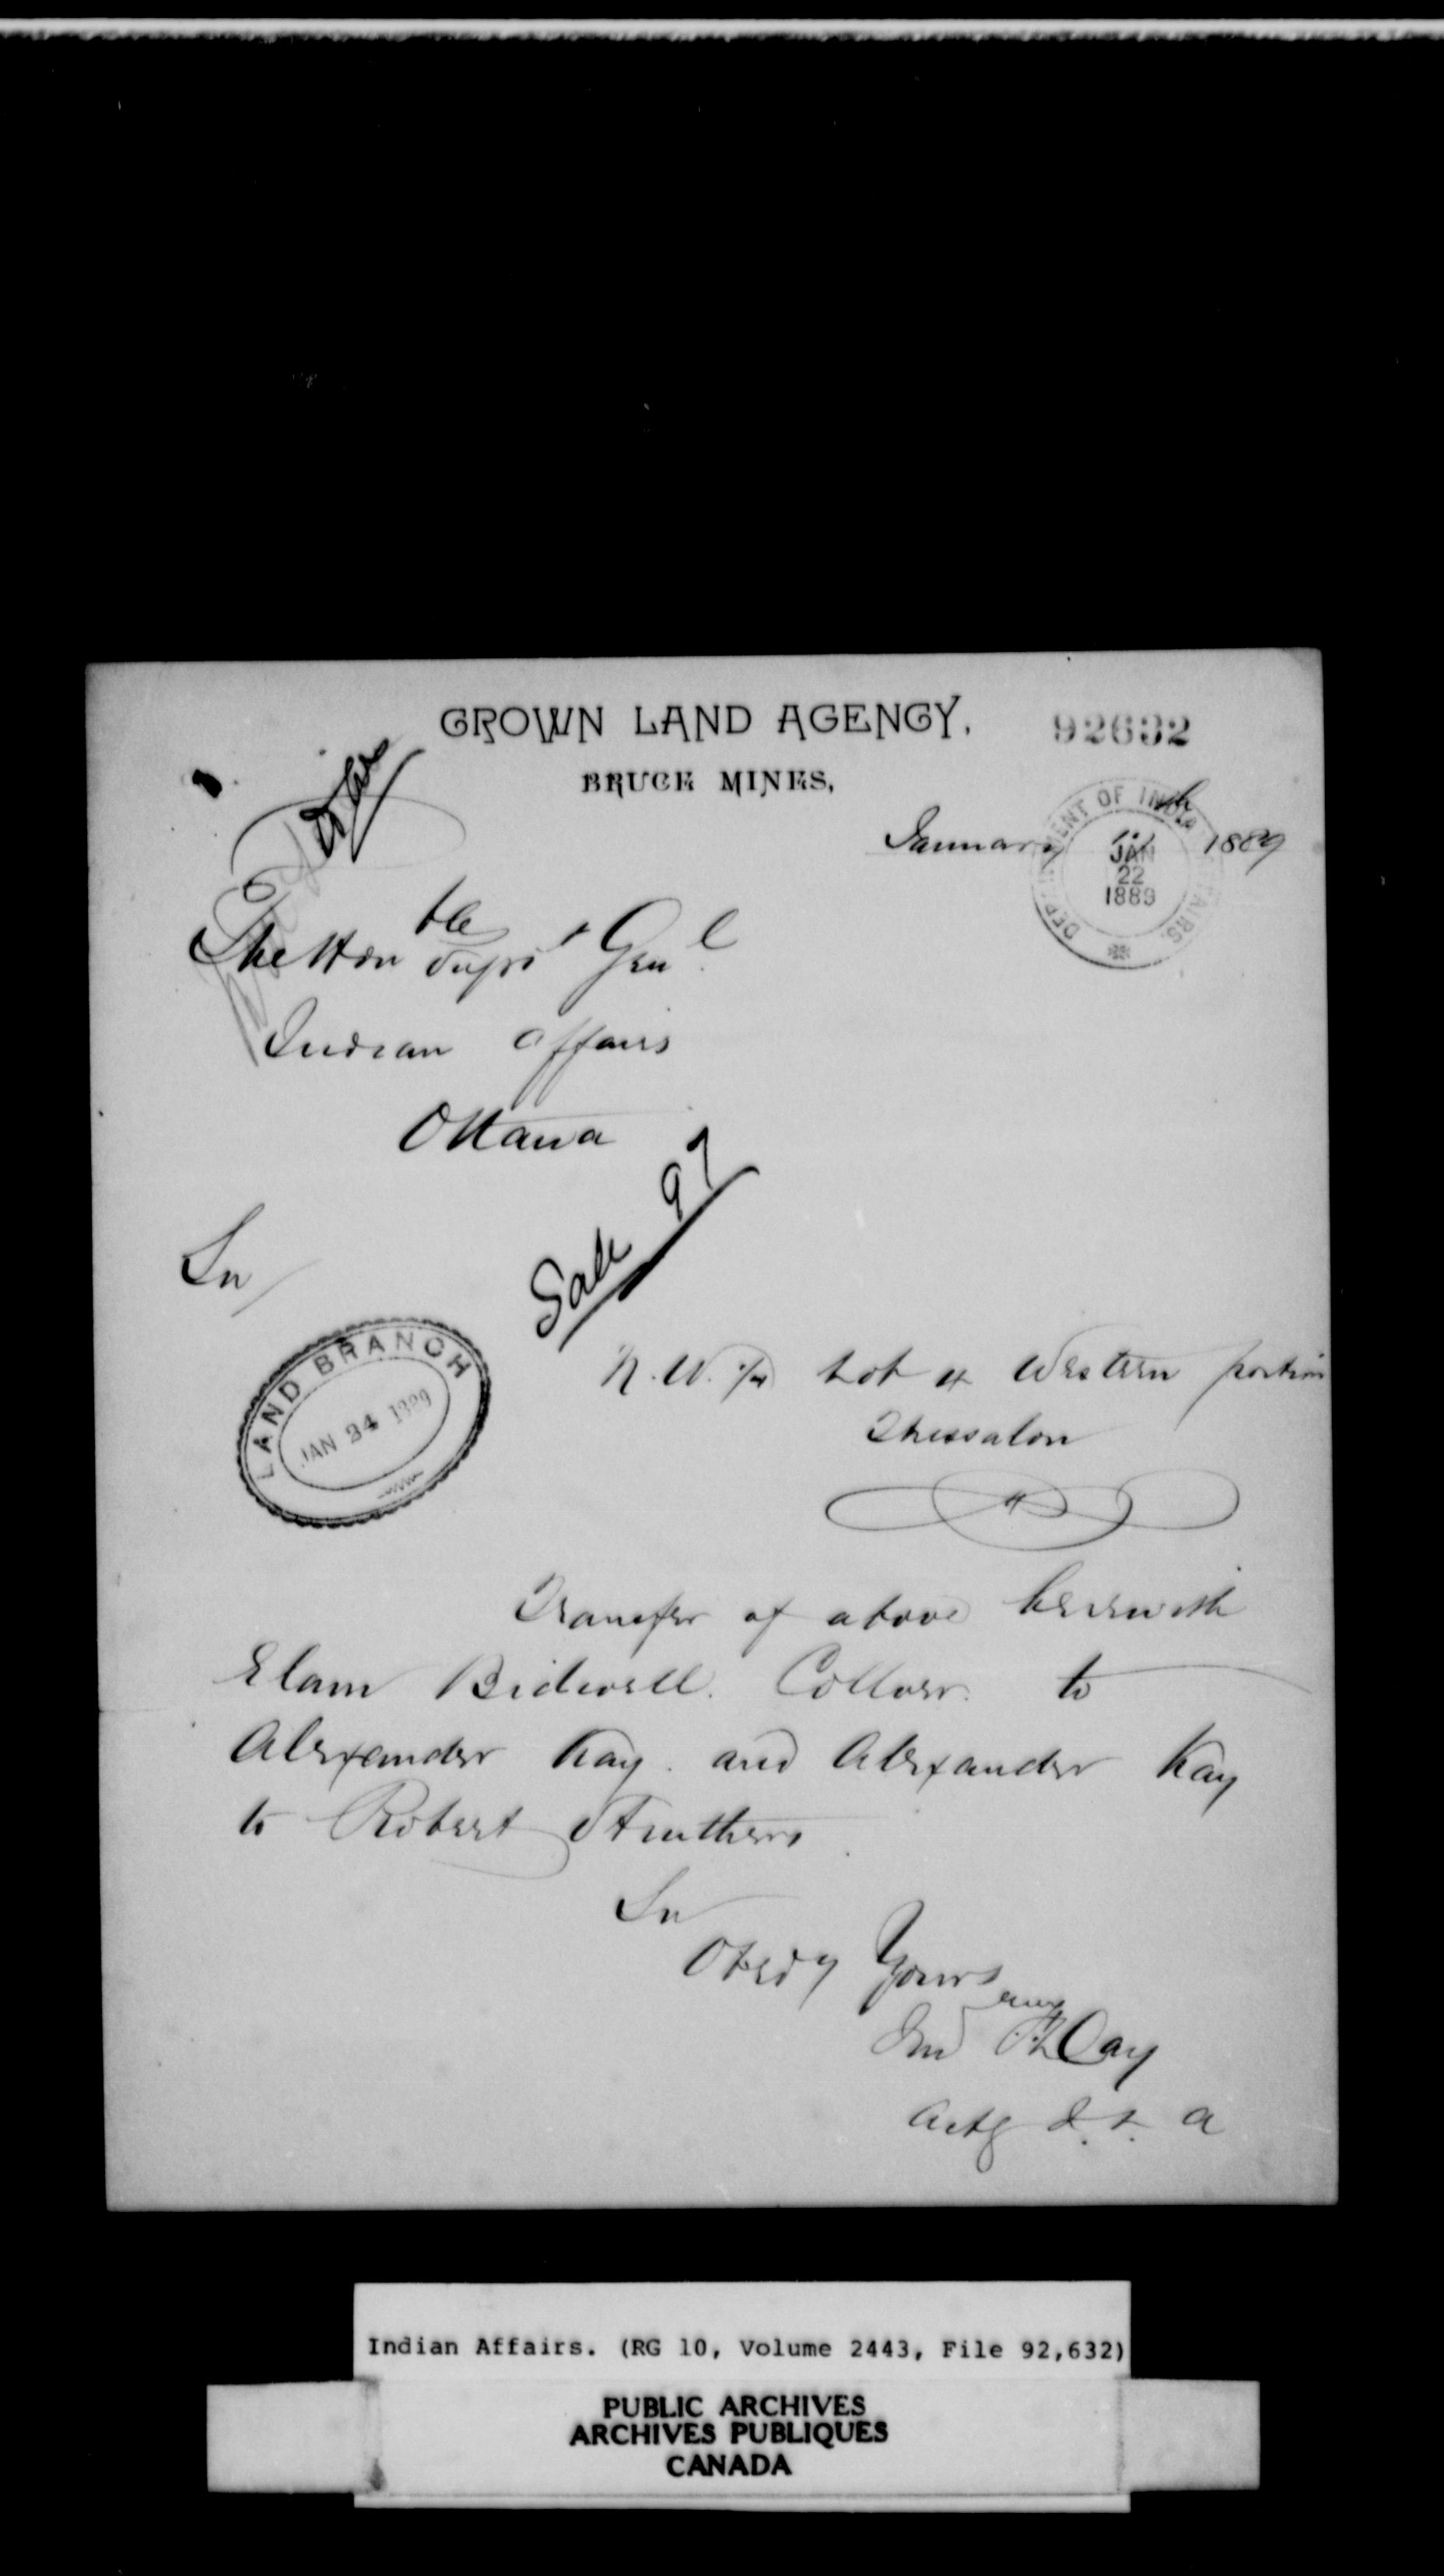 CROWN LAND AGENCY,
92632
BRUCE MINES,
January 1889
DEPARTMENT OF INDIAN AFFAIRS.
JAN
22
1889
The Honble Supt Genl
Indian Affairs
Ottawa
Sale 97
Sir
LAND BRANCH
JAN 24 1889
N.W. 1/4 Lot 4 Western portion
Thessalon
Transfer of above herewith
Elam Bidwell. Collver. to
Alexander Kay. and Alexander Kay
to Robert Struthers.
Sir
Obedy Yours
Day
Actg I. L. A
Indian Affairs. (RG 10, Volume 2443, File 92,632)
PUBLIC ARCHIVES
ARCHIVES PUBLIQUES
CANADA